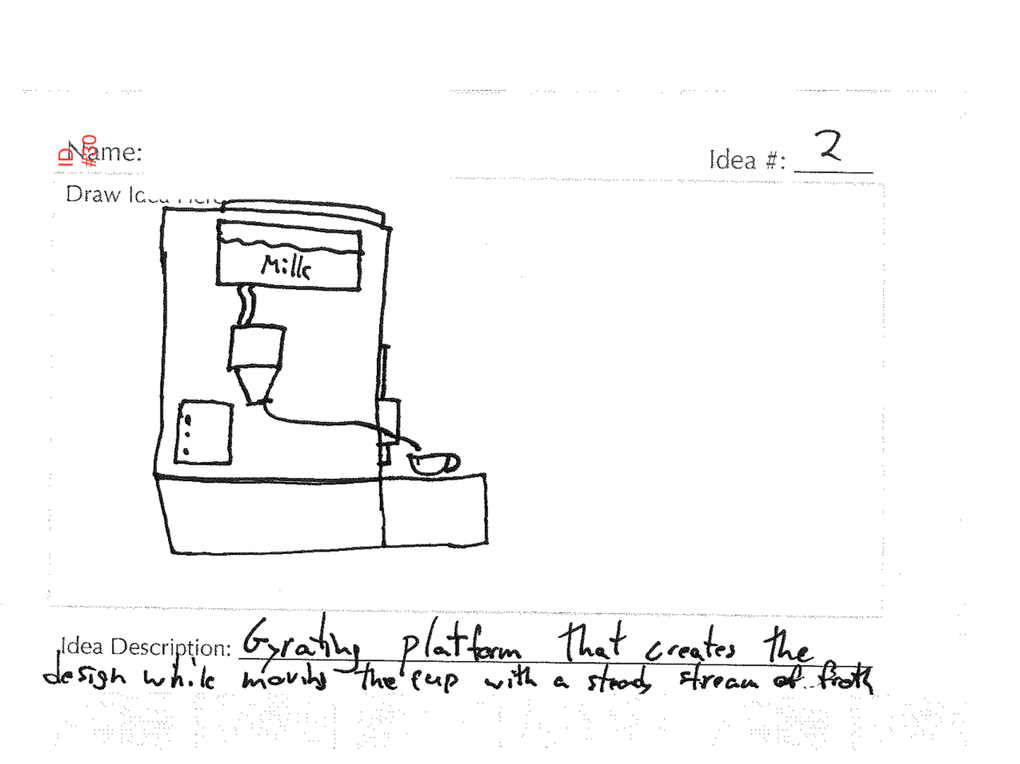 ID #30
Name:
Idea #: 2
Draw Idea Here
Milk
Idea Description: Gyrating platform that creates the
design while moving the cup with a steady stream of froth